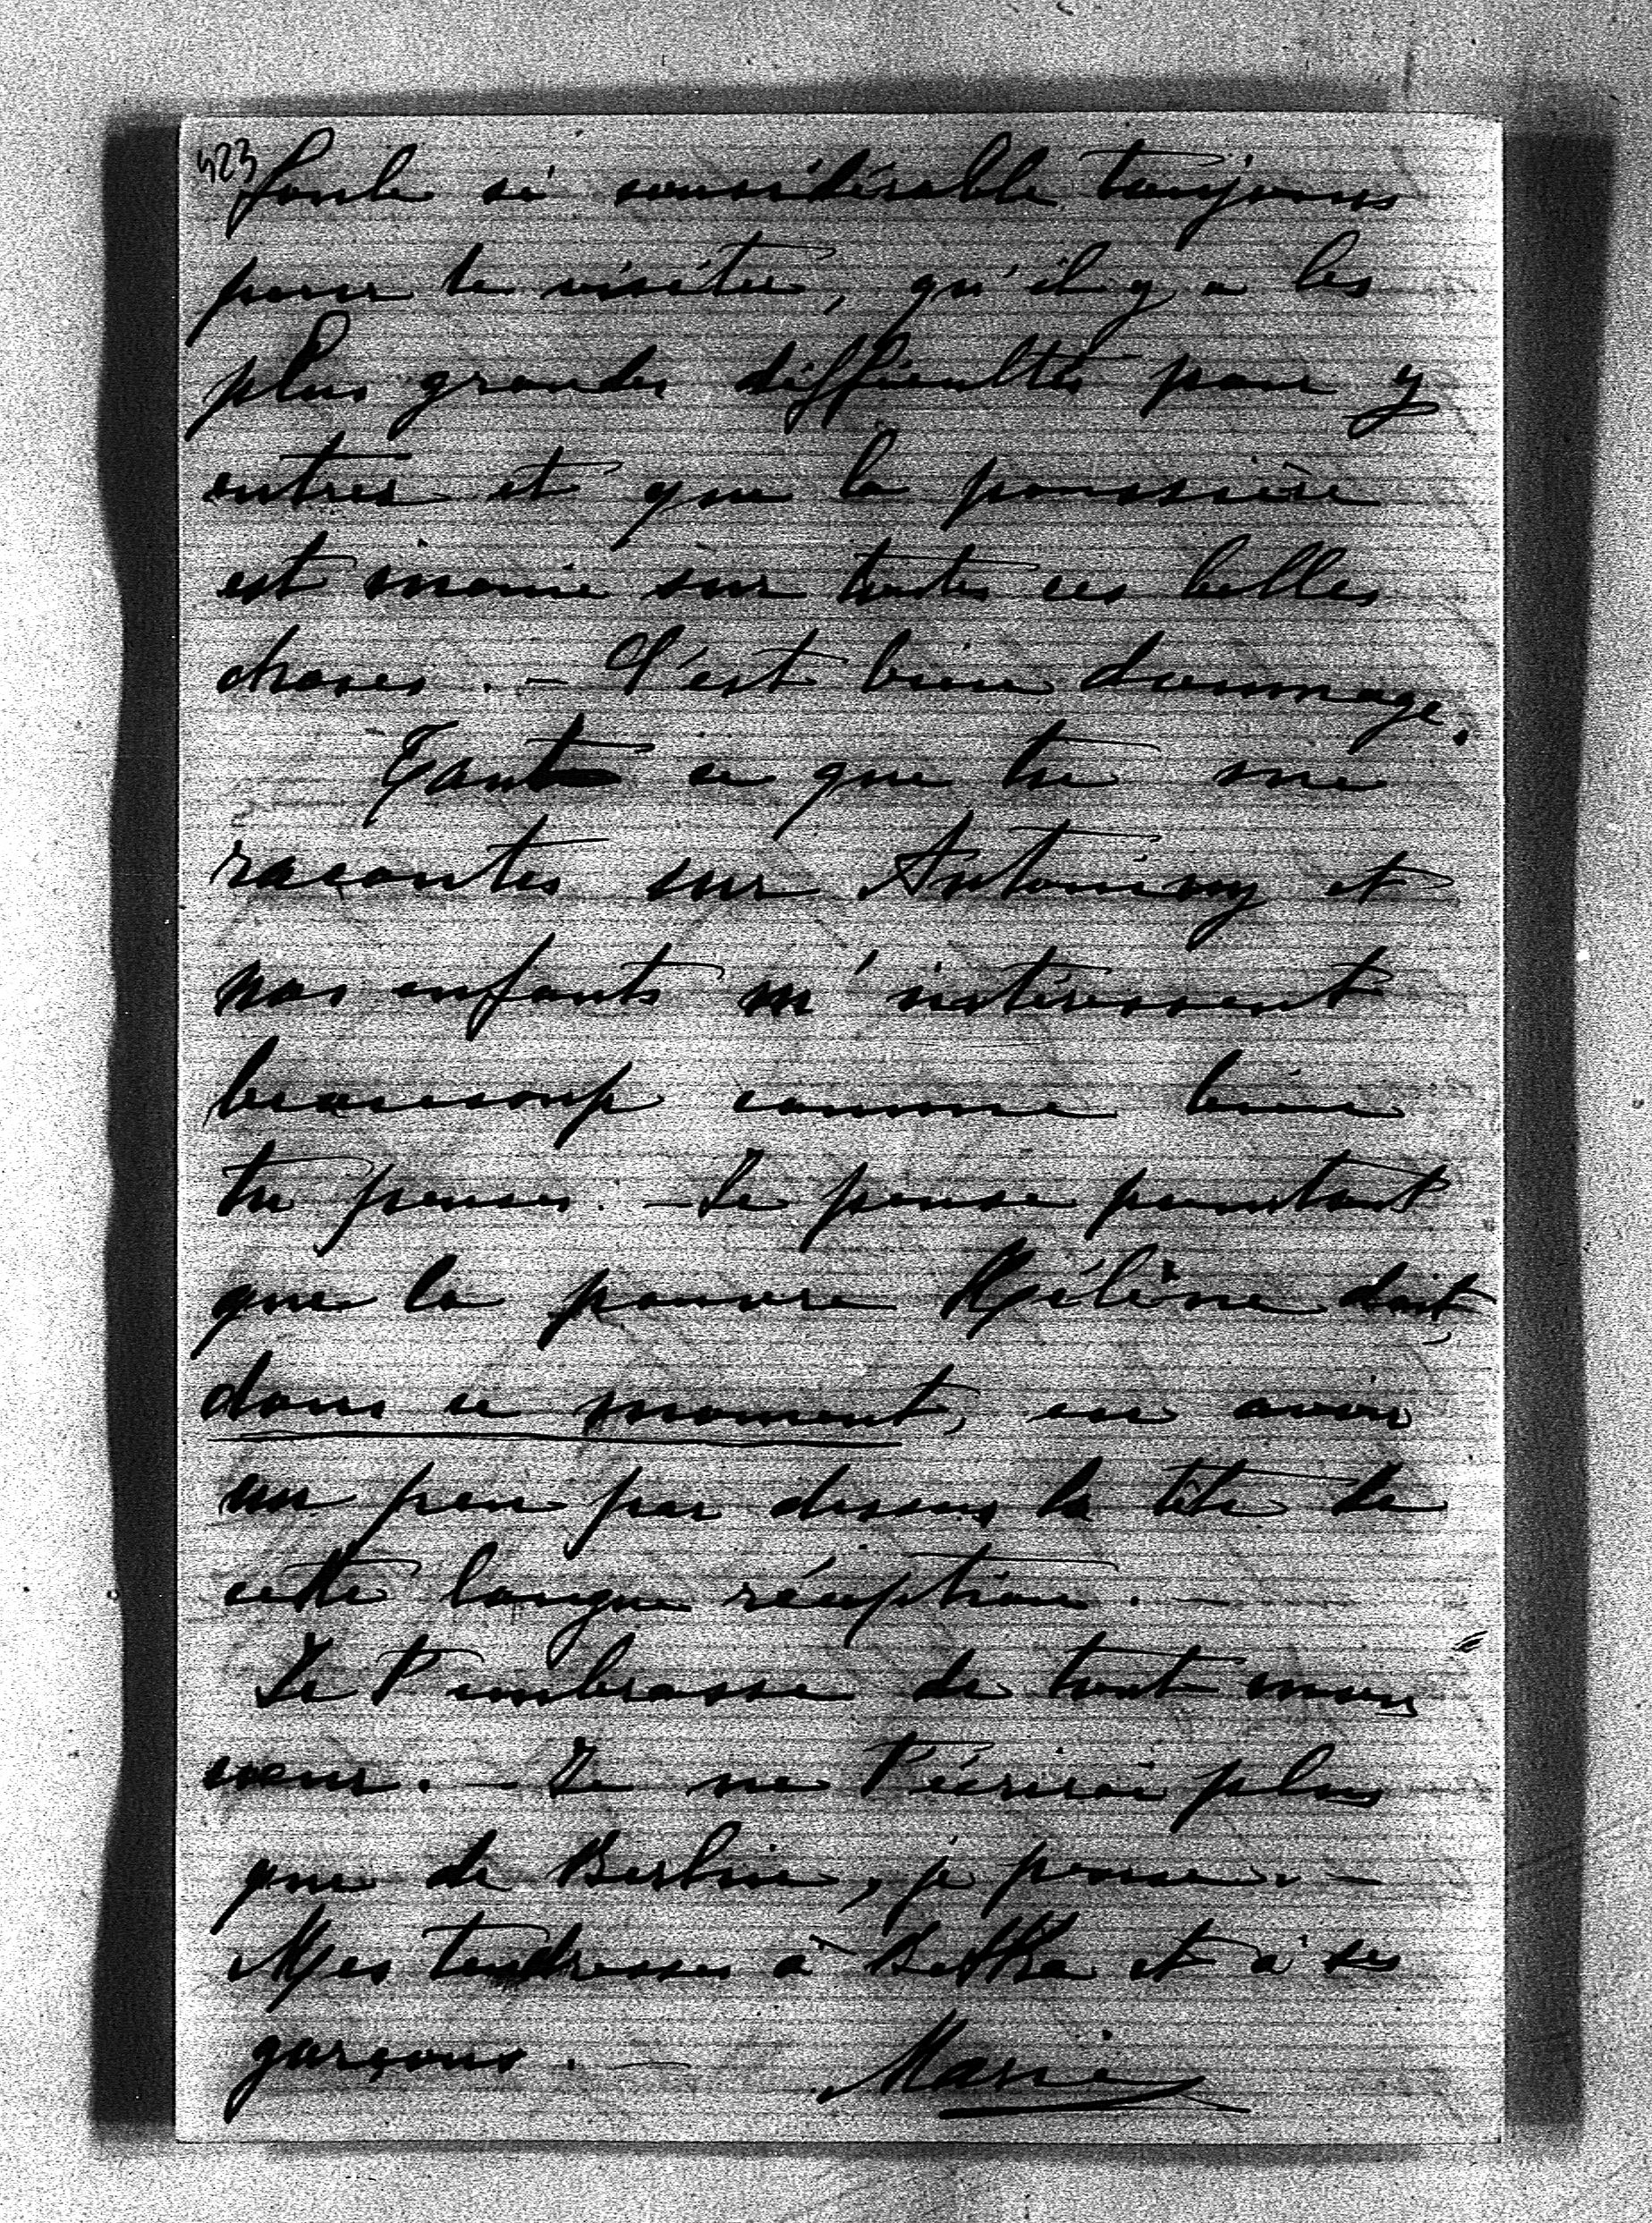 523
foule si considérable toujours
pour le visiter, qu'il y a les
plus grandes difficultés pour y
entrer et que la poussière
est inouie sur toutes ces belles
choses. - C'est bien dommage.
Tout ce que tu me
racontes sur Antoniny et
nos enfants m'intéressent
beaucoup comme bien
tu penses. - Je pense pourtant
que la pauvre Hélène doit,
dans ce moment, en avoir
un peu par dessus la tête de
cette longue réception. -
Je t'embrasse de tout mon
cœur. - Je ne t'écrirai plus
que de Berlin, je pense. -
Mes tendresses à Betka et à ses
garçons. - Marie